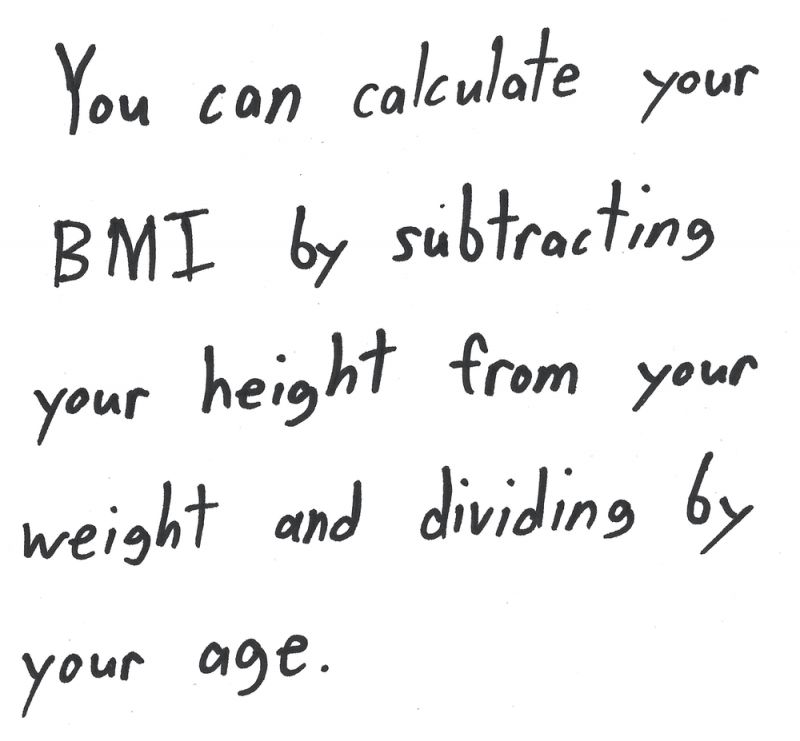 You can calculate your
BMI by subtracting
your height from your
weight and dividing by
your age.